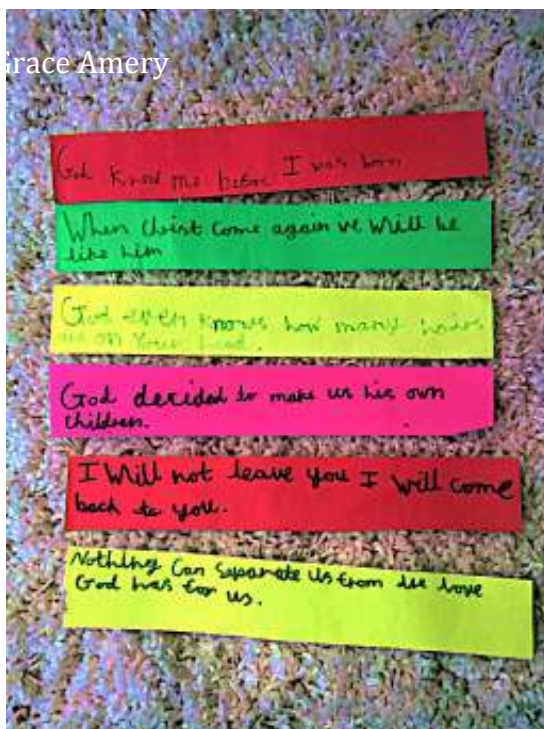 Grace Amery
God knew me before I was born
When Christ come again we will be
like him
God even knows how many hairs
are on your head.
God decided to make us his own
children.
I Will not leave you I will come
back to you.
Nothing Can separate us from the love
God has for us.